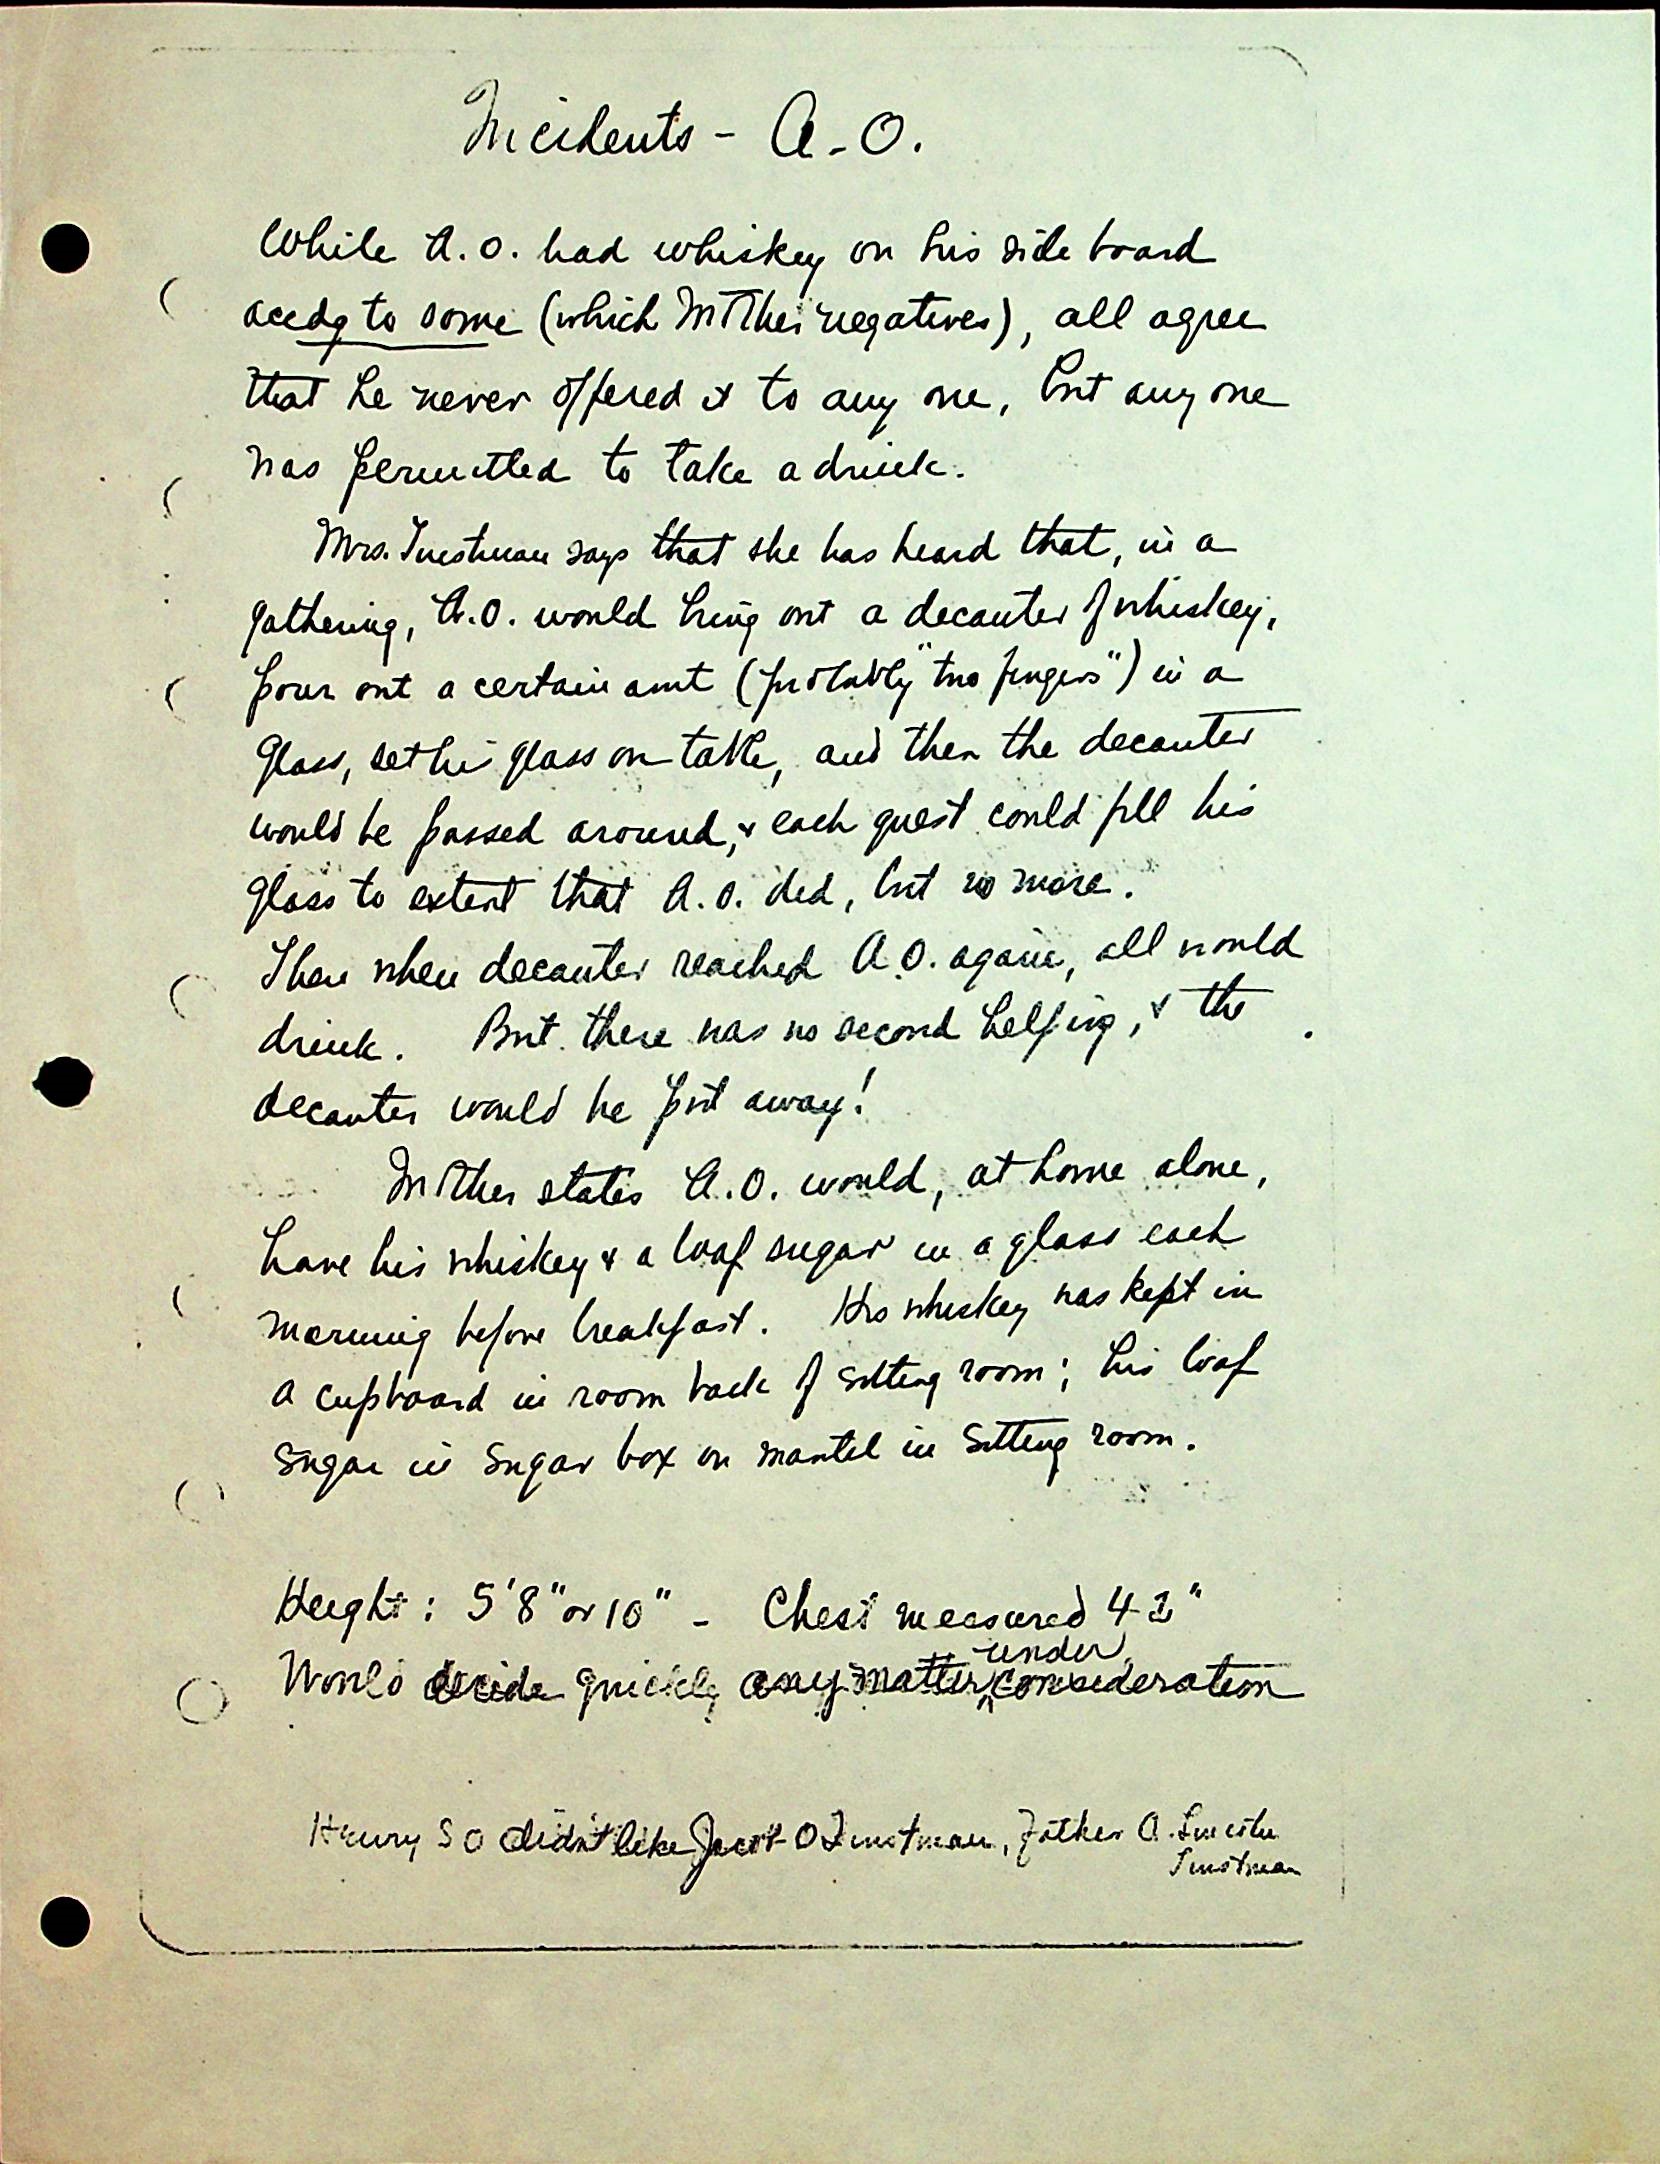 Incidents - A.O.
While A.O. had whiskey on his side board
accdg to some (which Mother negatives), all agree
that he never offered it to any one, but any one
was permitted to take a drink.
Mrs. Tinstman says that she has heard that, in a
gathering, A.O. would bring out a decanter of whiskey,
pour out a certain amt (probably "two fingers") in a
glass, set his glass on table, and then the decanter
would be passed around, & each guest could fill his
glass to extent that A.O. did, but no more.
Then when decanter reached A.O. again, all would
drink. But there was no second helping, & the
decanter would be put away!
Mother states A.O. would, at home alone,
have his whiskey & a loaf sugar in a glass each
morning before breakfast. His whiskey was kept in
a cupboard in room back of sitting room; his loaf
sugar in sugar box on mantel in sitting room.
Height: 5'8" or 10" - Chest measured 42"
under
Would decide quickly any matter consideration
Henry S O didn't like Jacob O Tinstman, Father A. Lincoln
Tinstman